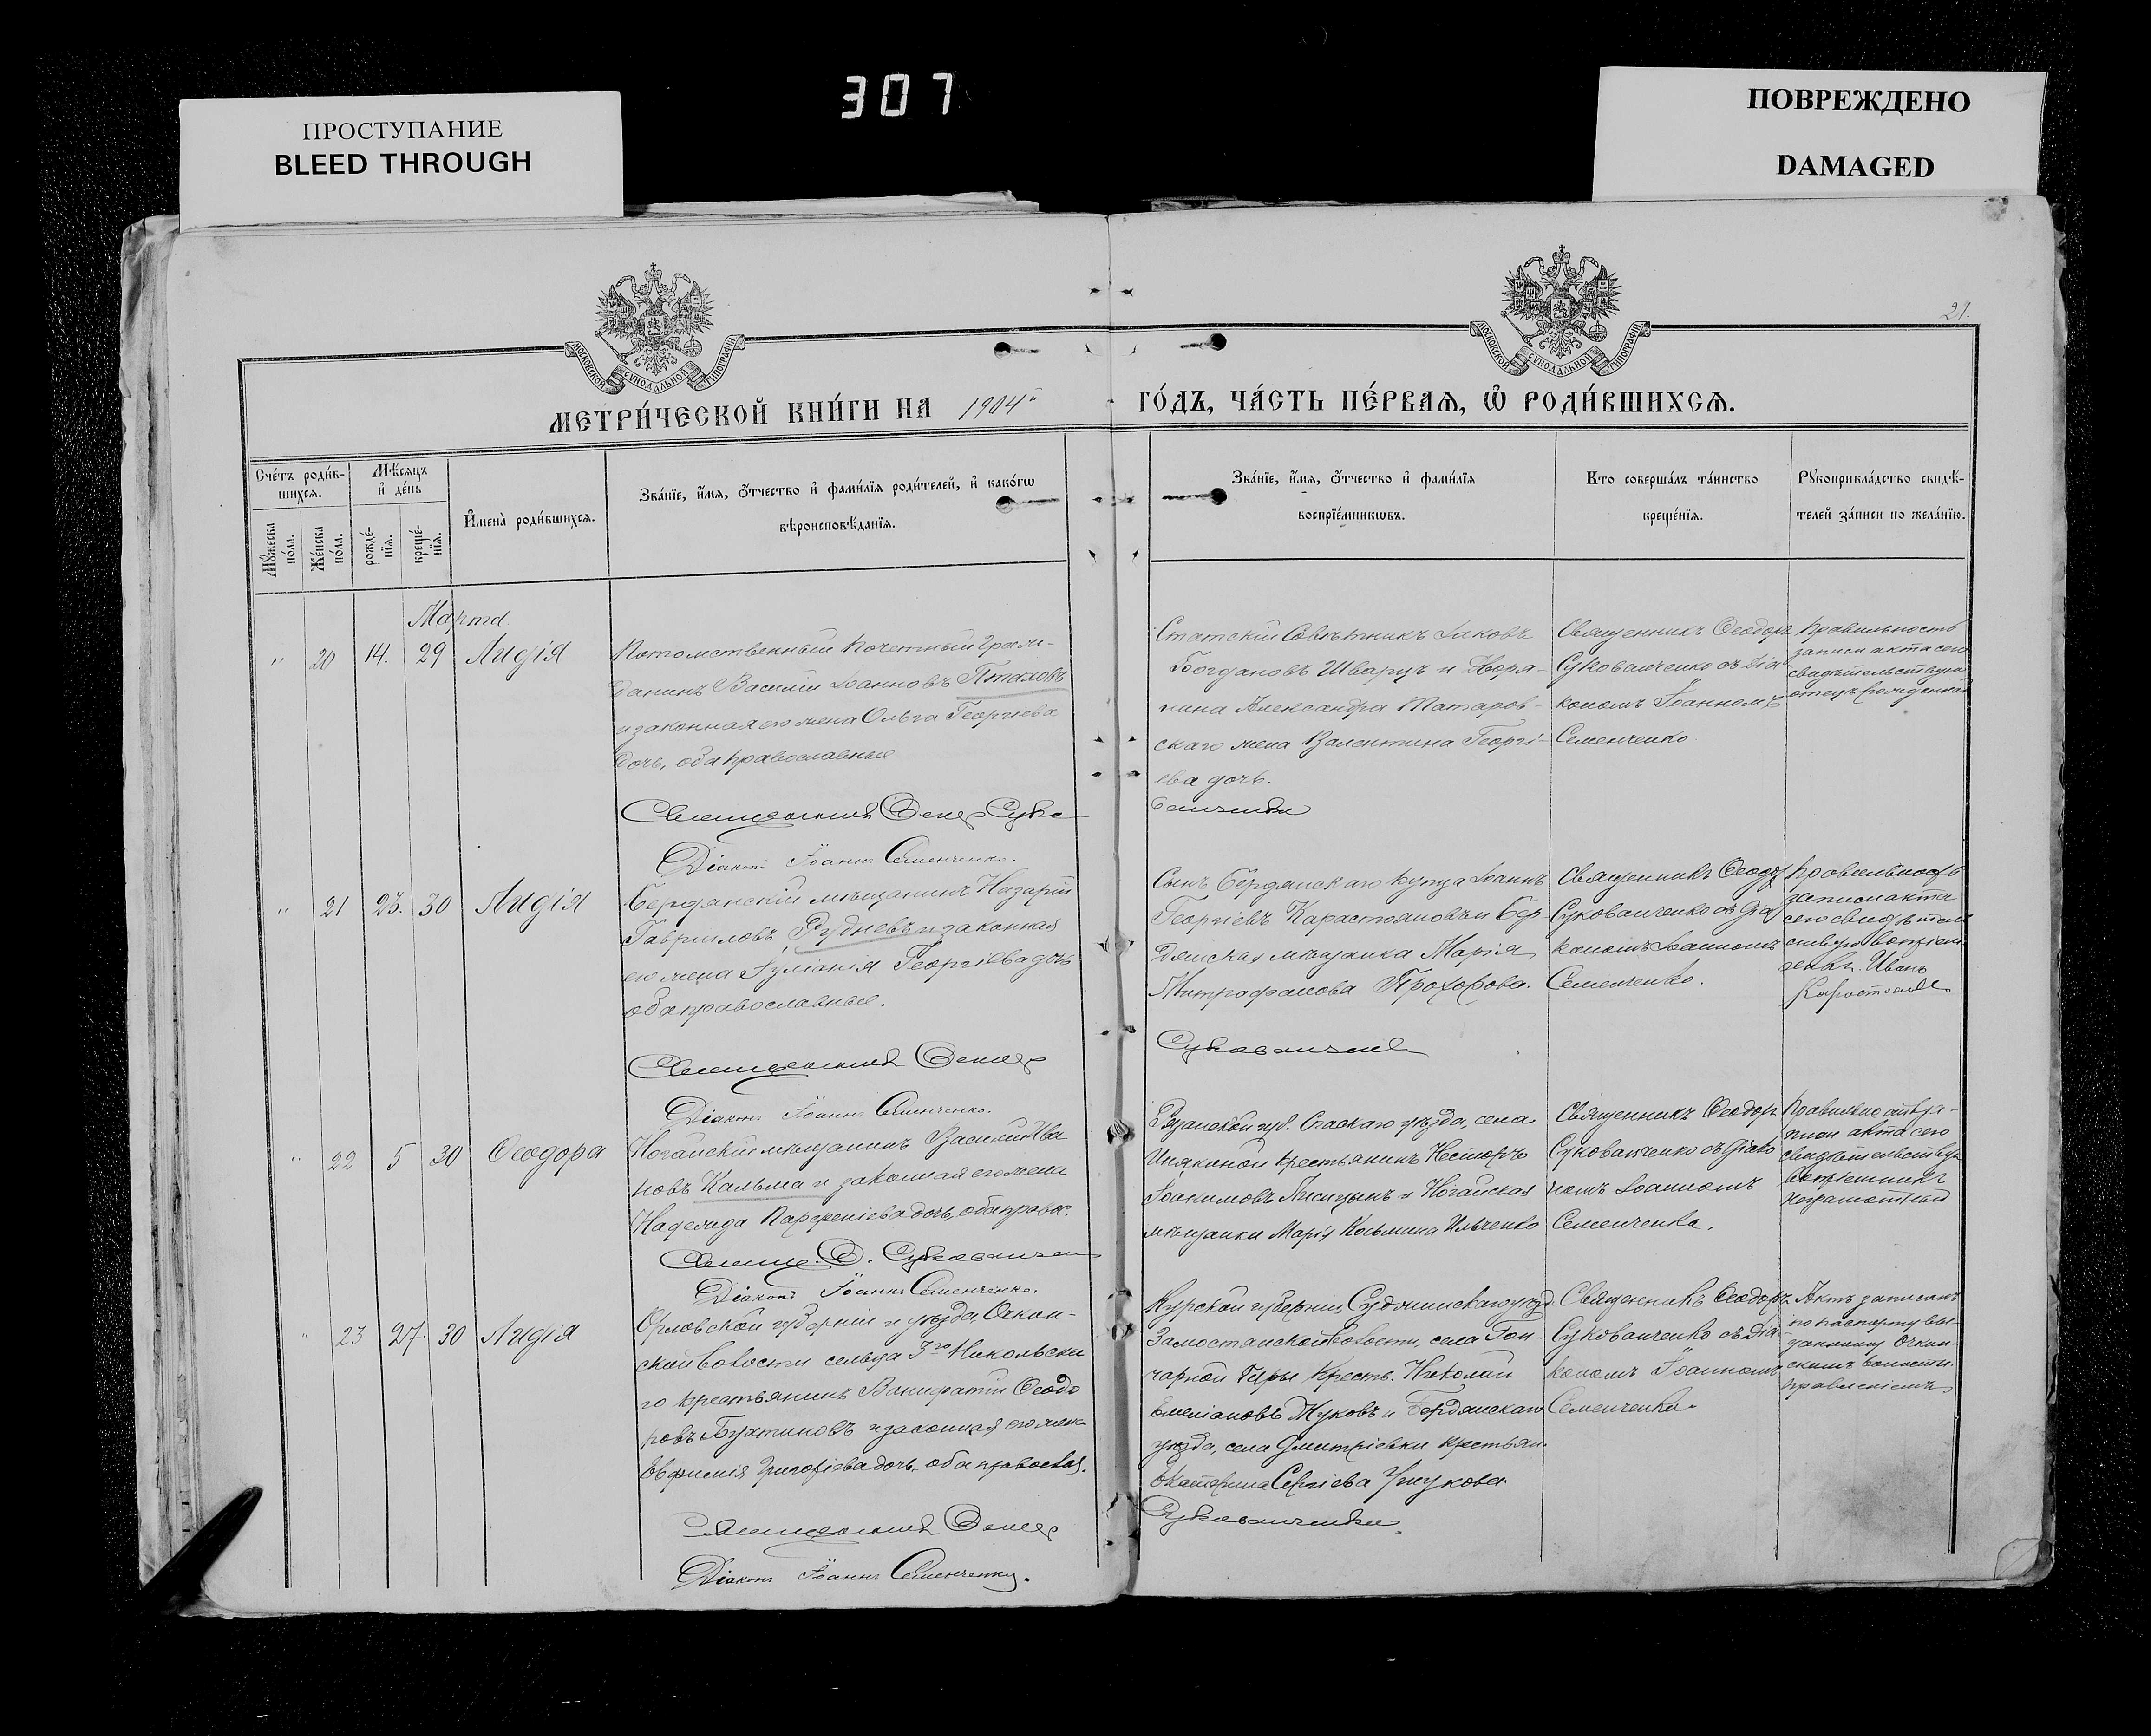 307
ПРОСТУПАНИЕ
BLEED THROUGH
ПОВРЕЖДЕНО
DAMAGED
21.
МОСКОВСКОЙ СѴНОДАЛЬНОЙ ТИПОГРАФІИ
МОСКОВСКОЙ СѴНОДАЛЬНОЙ ТИПОГРАФІИ
МЕТРИ́ЧЕСКОЙ КНИ́ГИ НА 1904й
ГО́ДЪ, ЧА́СТЬ ПЕ́РВАѦ, Ѽ РОДИ́ВШИХСѦ.
Сче́тъ роди́в-
шихсѧ.
Мѣсѧцъ
и҆ де́нь
Мꙋ́жеска
по́ла.
Же́нска
по́ла.
рожде́-
нїѧ.
креще́-
нїѧ.
И҆мена̀ роди́вшихсѧ.
Зва́нїе, и҆́мѧ, ѻ҆́тчество и҆ фами́лїѧ роди́телей, и҆ како́гѡ
вѣроисповѣ́данїѧ.
Зва́нїе, и҆́мѧ, ѻ҆́тчество и҆ фами́лїѧ
воспрїе́мникѡвъ.
Кто соверша́лъ та́инство
креще́нїѧ.
Рꙋкоприкла́дство свидѣ́-
телей за́писи по жела́нїю.
Марта
" 20 14. 29 Лидія
Потомственный Почетный Граж-
данинъ Василій Іоанновъ Птаховъ
и законная его жена Ольга Георгіева
дочь, оба православные
Священникъ Ѳеод. Суко-
Діаконъ Іоаннъ Семенченко.
Статскій Совѣтникъ Іаковъ
Богдановъ Шварцъ и Дворя-
нина Александра Татаров-
скаго жена Валентина Георгі-
ева дочь.
Священникъ Ѳеодоръ
Сукованченко съ діа
кономъ Іоанномъ
Семенченко
Правильность
записи акта сего
свидѣтельствую
отецъ рожденной
" 21 23. 30 Лидія
Бердянскій мѣщанинъ Назарій
Гавриловъ Рудневъ и законная
его жена Іуліанія Георгіева дочь
оба православные.
Священникъ Ѳеодор
Діаконъ Іоаннъ Семенченко.
Сынъ Бердянскаго купца Іоаннъ
Георгіевъ Карастояновъ и Бер-
дянская мѣщанка Марія
Митрофанова Прохорова.
Сукованченко
Священникъ Ѳеодоръ
Сукованченко съ діа
кономъ Іоанномъ
Семенченко.
Правильность
записи акта
сего свидѣтель
Иванъ
" 22 5 30 Ѳеодора
Ногайскій мѣщанинъ Василій Ива
новъ Кальма и законная его жена
Надежда Парфеніева дочь, оба правос.
Свящ. Ѳ. Сукованчен
Діаконъ Іоаннъ Семенченко.
Рязанской губ. Спаскаго уѣзда, села
Инякиной крестьянинъ Несторъ
Іоакимовъ Лисицынъ и Ногайская
мѣщанки Марія Косьмина Ильченко
Священникъ Ѳеодоръ
Сукованченко съ діако
номъ Іоанномъ
Семенченко.
Правильность за-
писи акта сего
свидѣтельствую
воспріемникъ
неграмотный
" 23 27. 30 Лидія
Орловской губерніи и уѣзда, Очкин-
ской волости сельца 3го Никольска
го крестьянинъ Вонифатій Ѳеодо
ровъ Бухтиновъ и законная его жена
Евфимія Григоріева дочь, оба правосл.
Священникъ Ѳеодор
Діаконъ Іоаннъ Семенченко.
Курской губерніи, Суджинскаго уѣзд
Замостянской волости, села Гон-
чарной Гиры крестьян. Николай
Емеліановъ Жуковъ и Бердянскаго
уѣзда, села Дмитріевки крестьян.
Екатерина Сергіева
Сукованченко
Священникъ Ѳеодоръ
Сукованченко съ діа
кономъ Іоанномъ
Семенченко.
Актъ записанъ
по паспорту вы-
данному Очкин-
скимъ волостн.
правленіемъ